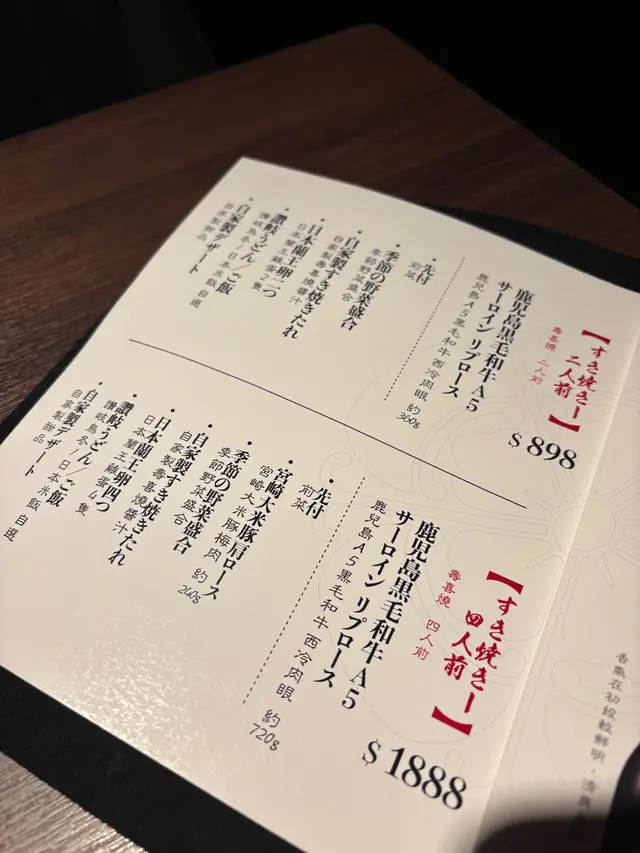 【すき焼きー
二人前】
壽喜燒 二人前
$898
鹿児島黒毛和牛A5
サーロイン リブロース
鹿兒島A5黑毛和牛 西冷肉眼 約360g
・先付
前菜
・季節の野菜盛合
季節野菜盛合
・自家製すき焼きたれ
自家製壽喜燒醬汁
・日本蘭王卵二つ
日本蘭王雞蛋2隻
・讃岐うどん/ご飯
讚岐烏冬/日本米飯 自選
・自家製デザート
自家製甜品
【すき焼きー
四人前】
壽喜燒 四人前
$1888
鹿児島黒毛和牛A5
サーロイン リブロース
鹿兒島A5黑毛和牛 西冷肉眼 約720g
・先付
前菜
・宮崎大米豚肩ロース
宮崎大米豚梅肉 約240g
・季節の野菜盛合
季節野菜盛合
・自家製すき焼きたれ
自家製壽喜燒醬汁
・日本蘭王卵四つ
日本蘭王雞蛋4隻
・讃岐うどん/ご飯
讚岐烏冬/日本米飯 自選
・自家製デザート
自家製甜品
香氣在初段較鮮明,清